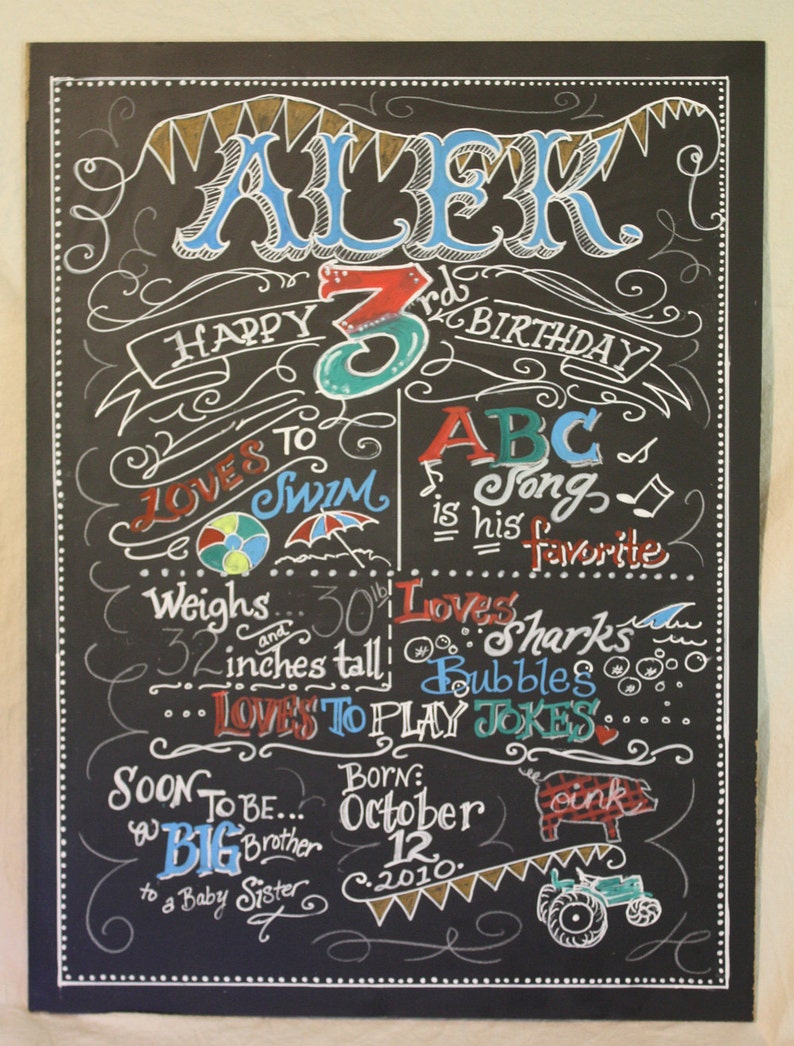 ALEK.
HAPPY 3rd BIRTHDAY
LOVES TO
SWIM
ABC
Song
is his
favorite
Weighs... 30 lb
and
32 inches tall
Loves
Sharks
Bubbles
...LOVES TO PLAY JOKES.....
SOON
TO BE...
a BIG Brother
to a Baby Sister
BORN:
October
12
.2010.
oink